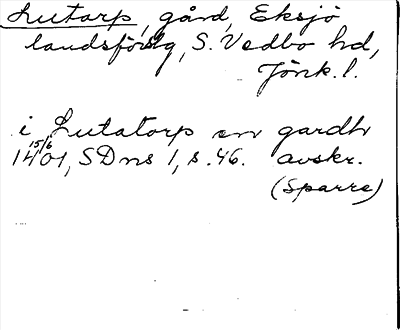 Lutarp, gård, Eksjö
landsförsg, S. Vedbo hd,
Jönk. l.
i Lutatorp en gardh
15/6 1401, SDns 1, s. 46. avskr.
(Sparre)